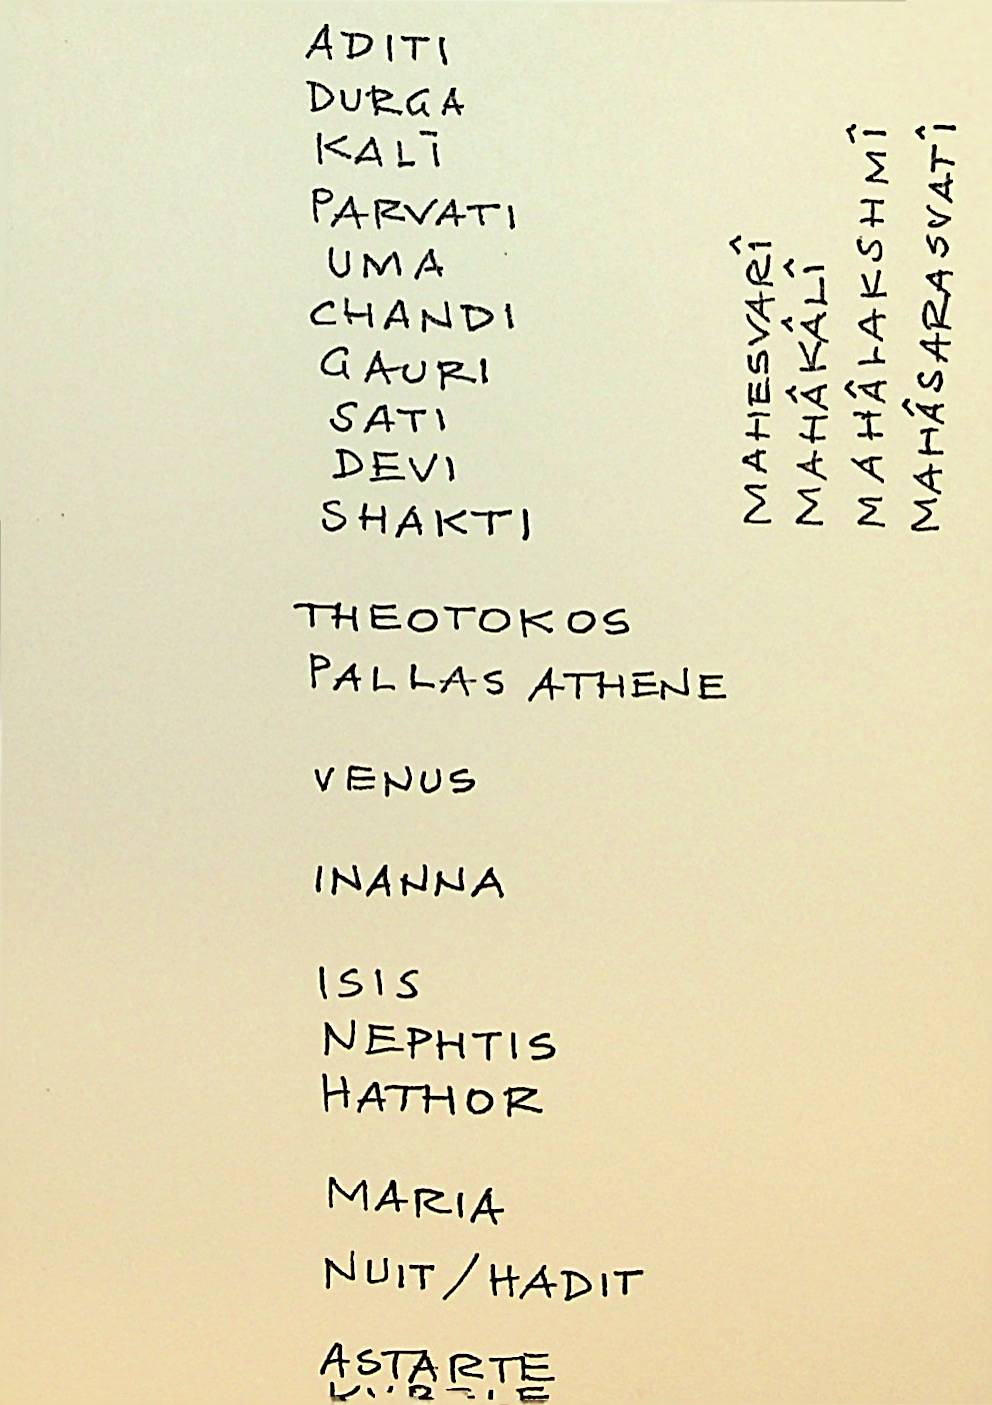 ADITI
DURGA
KALĪ
PARVATI
UMA
CHANDI
GAURI
SATI
DEVI
SHAKTI
THEOTOKOS
PALLAS ATHENE
VENUS
INANNA
ISIS
NEPHTIS
HATHOR
MARIA
NUIT/HADIT
ASTARTE
MAHESVARÎ
MAHÂKÂLÎ
MAHÂLAKSHMÎ
MAHÂSARASVATÎ